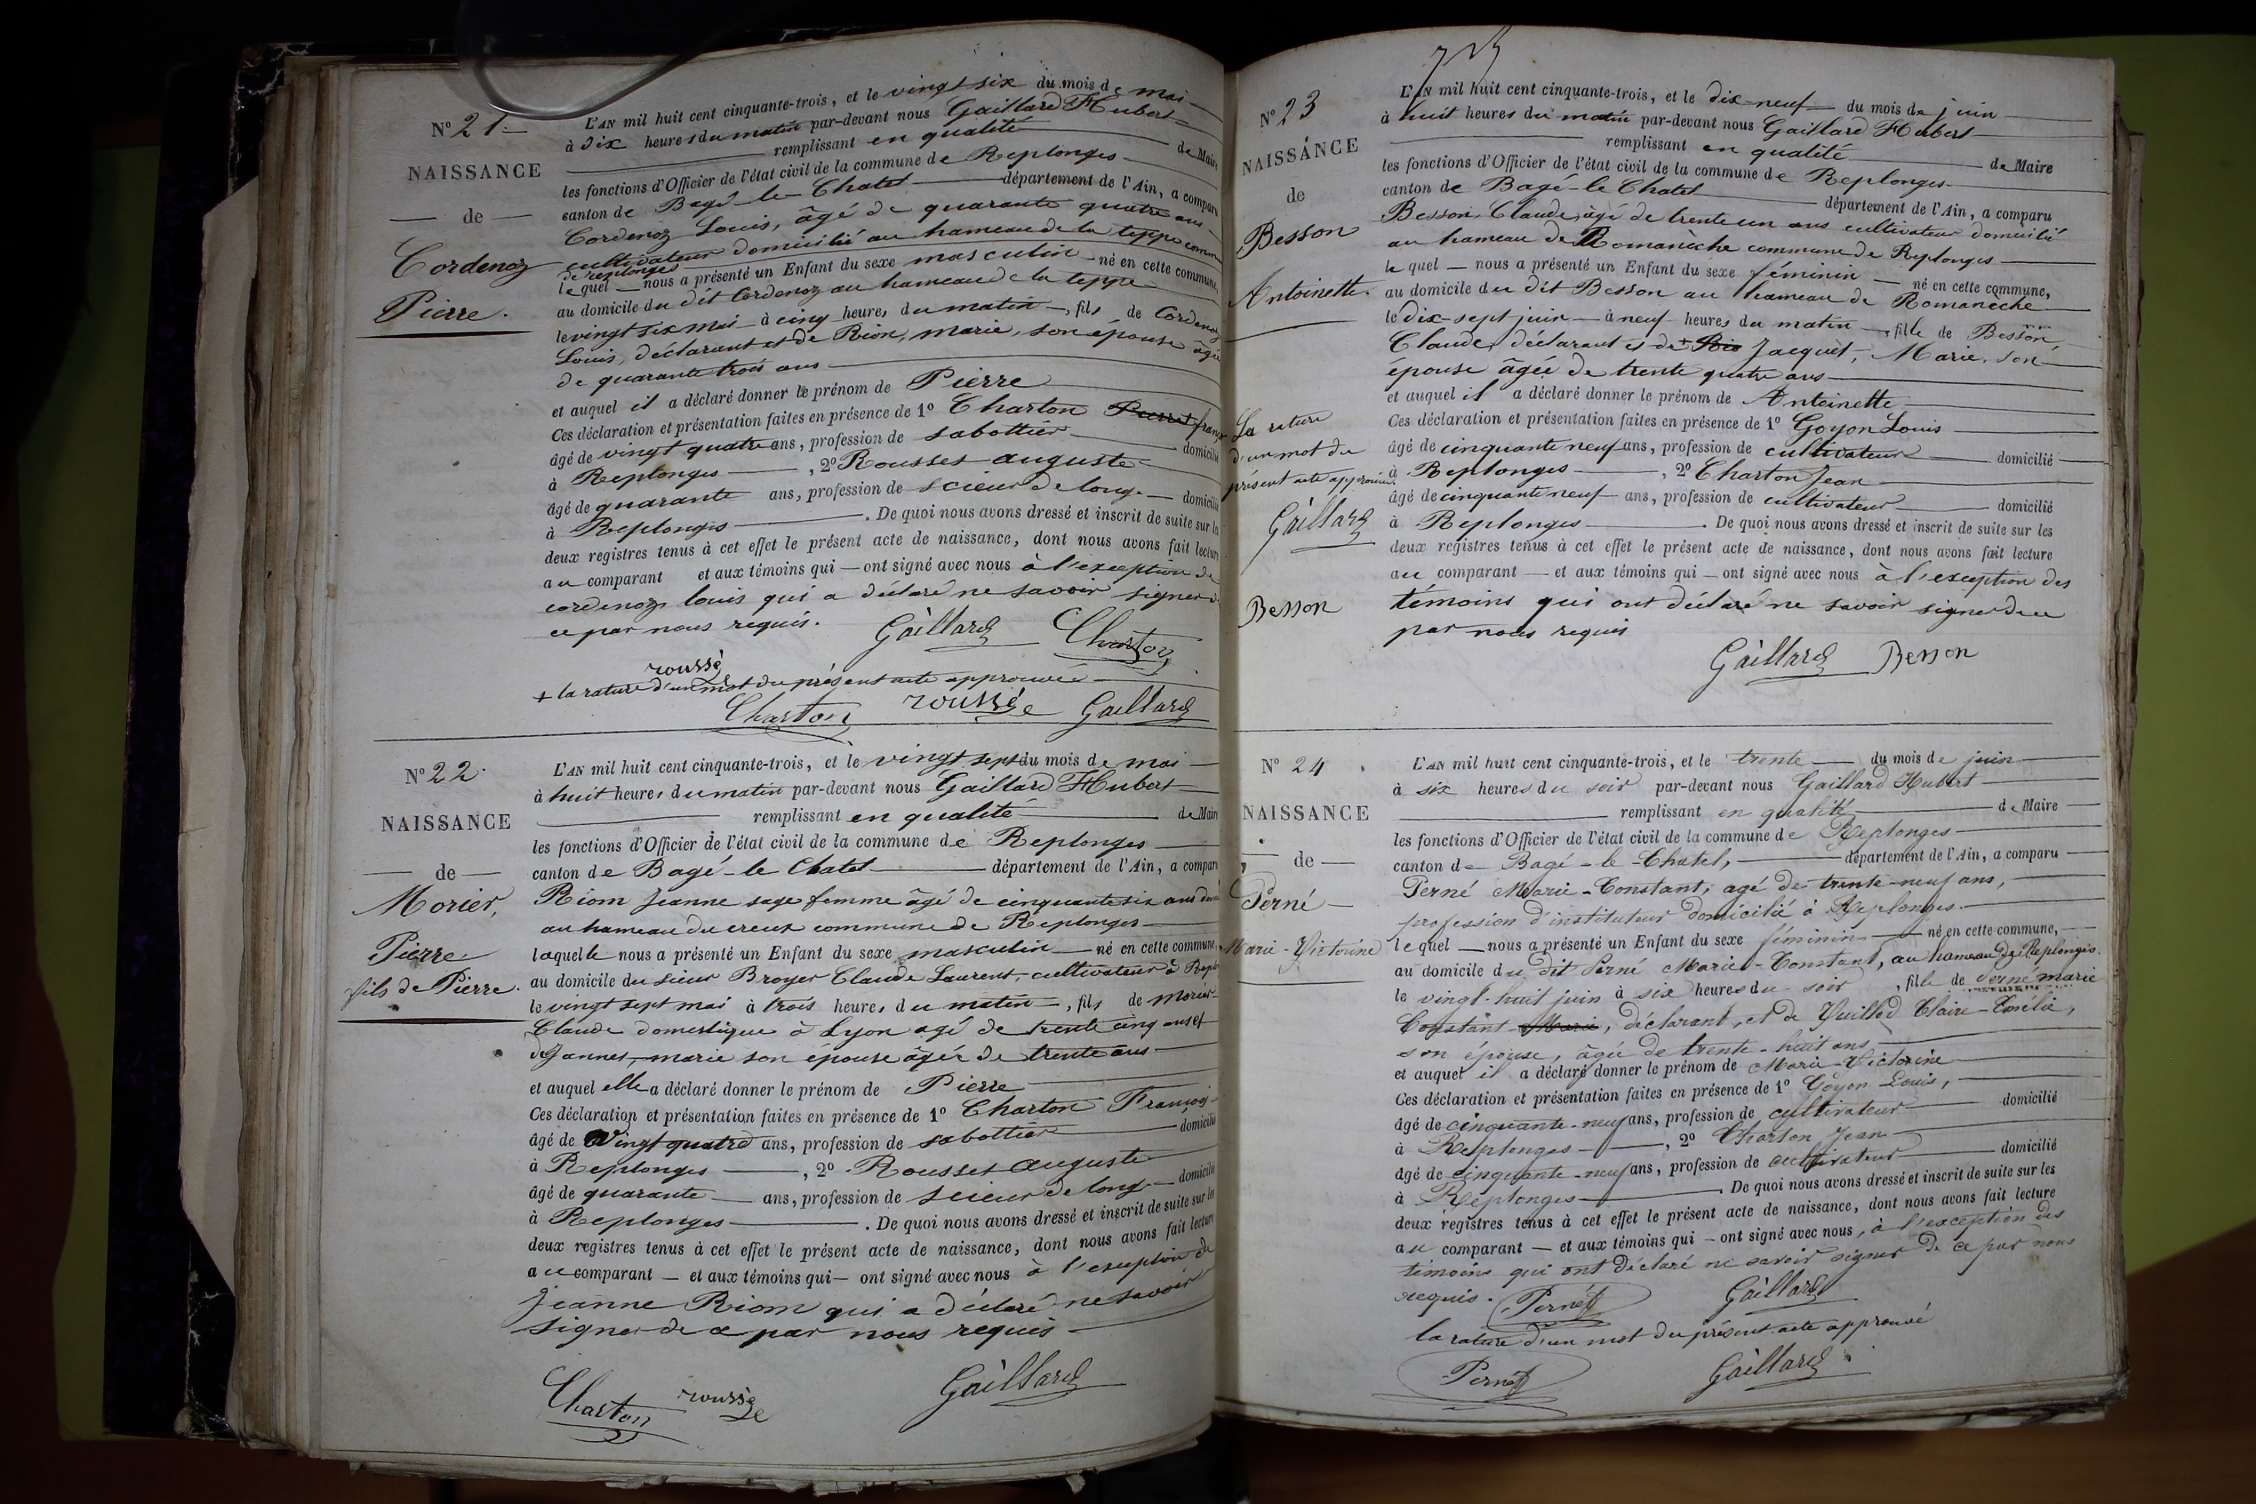 N° 21
NAISSANCE
de
Cordenoz
Pierre.
L'AN mil huit cent cinquante-trois, et le vingt six du mois de mai
à dix heures du matin par-devant nous Gaillard Hubert
remplissant en qualité de Maire
les fonctions d'Officier de l'état civil de la commune de Replonges
canton de Bagé-le-Chatel département de l'Ain, a comparu
Cordenoz Louis, âgé de quarante quatre ans
cultivateur domicilié au hameau de la teppe commune
de replonges
lequel nous a présenté un Enfant du sexe masculin né en cette commune,
au domicile du dit Cordenoz au hameau de la teppe
le vingt six mai à cinq heures du matin, fils de Cordenoz
Louis, déclarant et de Rion, marie, son épouse âgée
de quarante trois ans
et auquel il a déclaré donner le prénom de Pierre
Ces déclaration et présentation faites en présence de 1° Charton Pierre françois
âgé de vingt quatre ans, profession de sabottier domicilié
à Replonges, 2° Rousset auguste
âgé de quarante ans, profession de scieur de long domicilié
à Replonges. De quoi nous avons dressé et inscrit de suite sur les
deux registres tenus à cet effet le présent acte de naissance, dont nous avons fait lecture
au comparant et aux témoins qui ont signé avec nous à l'exception de
cordenoz louis qui a déclaré ne savoir signer de
ce par nous requis.
Gaillard Charton
rousse
+ la rature d'un mot du présent acte approuvée
Charton rousse Gaillard
N° 22
NAISSANCE
de
Morier,
Pierre
fils de Pierre.
L'AN mil huit cent cinquante-trois, et le vingt sept du mois de mai
à huit heures du matin par-devant nous Gaillard Hubert
remplissant en qualité de Maire
les fonctions d'Officier de l'état civil de la commune de Replonges
canton de Bagé-le Chatel département de l'Ain, a comparu
Riom Jeanne sage femme âgé de cinquante six ans
au hameau du creux commune de Replonges
laquelle nous a présenté un Enfant du sexe masculin né en cette commune,
au domicile du sieur Broyer Claude Laurent, cultivateur à
le vingt sept mai à trois heures du matin, fils de Morier
Claude domestique à Lyon agé de trente cinq ans et
Jannet, marie son épouse âgée de trente ans
et auquel elle a déclaré donner le prénom de Pierre
Ces déclaration et présentation faites en présence de 1° Charton François
âgé de vingt quatre ans, profession de sabottier domicilié
à Replonges, 2° Rousset auguste
âgé de quarante ans, profession de scieur de long domicilié
à Replonges. De quoi nous avons dressé et inscrit de suite sur les
deux registres tenus à cet effet le présent acte de naissance, dont nous avons fait lecture
au comparant et aux témoins qui ont signé avec nous à l'exception de
Jeanne Riom qui a déclaré ne savoir
signer de ce par nous requis
Charton rousse Gaillard
N° 23
NAISSANCE
de
Besson
Antoinette.
La rature
d'un mot du
présent acte approuvée
Gaillard
Besson
L'AN mil huit cent cinquante-trois, et le dix-neuf du mois de juin
à huit heures du matin par-devant nous Gaillard Hubert
remplissant en qualité de Maire
les fonctions d'Officier de l'état civil de la commune de Replonges
canton de Bagé-le Chatel département de l'Ain, a comparu
Besson, Claude, âgé de trente un ans cultivateur domicilié
au hameau de Romanèche commune de Replonges
lequel nous a présenté un Enfant du sexe féminin né en cette commune,
au domicile du dit Besson au hameau de Romanèche
le dix-sept juin à neuf heures du matin, fille de Besson,
Claude, déclarant et de + Rio Jacquet, Marie, son
épouse âgée de trente quatre ans
et auquel il a déclaré donner le prénom de Antoinette
Ces déclaration et présentation faites en présence de 1° Goyon Louis
âgé de cinquante neuf ans, profession de cultivateur domicilié
à Replonges, 2° Charton Jean
âgé de cinquante neuf ans, profession de cultivateur domicilié
à Replonges. De quoi nous avons dressé et inscrit de suite sur les
deux registres tenus à cet effet le présent acte de naissance, dont nous avons fait lecture
au comparant et aux témoins qui ont signé avec nous à l'exception des
témoins qui ont déclaré ne savoir signer de ce
par nous requis
Gaillard Besson
N° 24
NAISSANCE
de
Perné
Marie-Victorine
L'AN mil huit cent cinquante-trois, et le trente du mois de juin
à six heures du soir par-devant nous Gaillard Hubert
remplissant en qualité de Maire
les fonctions d'Officier de l'état civil de la commune de Replonges
canton de Bagé-le-Chatel, département de l'Ain, a comparu
Perné Marie-Constant, agé de trente-neuf ans,
profession d'instituteur domicilié à Replonges.
lequel nous a présenté un Enfant du sexe féminin né en cette commune,
au domicile du dit Perné Marie-Constant, au hameau de Replonges.
le vingt-huit juin à six heures du soir, fille de Perné marie
Constant Marie, déclarant, et de Vuillod Claire-Emélie,
son épouse, âgée de trente-huit ans,
et auquel il a déclaré donner le prénom de Marie-Victorine
Ces déclaration et présentation faites en présence de 1° Goyon Louis,
âgé de cinquante-neuf ans, profession de cultivateur domicilié
à Replonges, 2° Charton Jean
âgé de cinquante-neuf ans, profession de cultivateur domicilié
à Replonges. De quoi nous avons dressé et inscrit de suite sur les
deux registres tenus à cet effet le présent acte de naissance, dont nous avons fait lecture
au comparant et aux témoins qui ont signé avec nous, à l'exception des
témoins qui ont déclaré ne savoir signer de ce par nous
requis. Perné Gaillard
la rature d'un mot du présent acte approuvé
Perné Gaillard